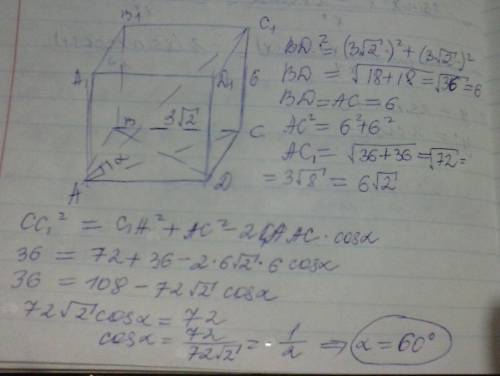 B₁
C₁
A₁
D₁
6
B
3√2
C
α
A
D
BD² = (3√2)² + (3√2)²
BD = √18+18 = √36 = 6
BD = AC = 6
AC² = 6² + 6²
AC₁ = √36+36 = √72 =
= 3√8 = 6√2
CC₁² = C₁A² + AC² - 2C₁A AC · cosα
36 = 72 + 36 - 2 · 6√2 · 6 cosα
36 = 108 - 72√2 cosα
72√2 cosα = 72
cosα = 72/72√2 = 1/2 ⇒ α = 60°